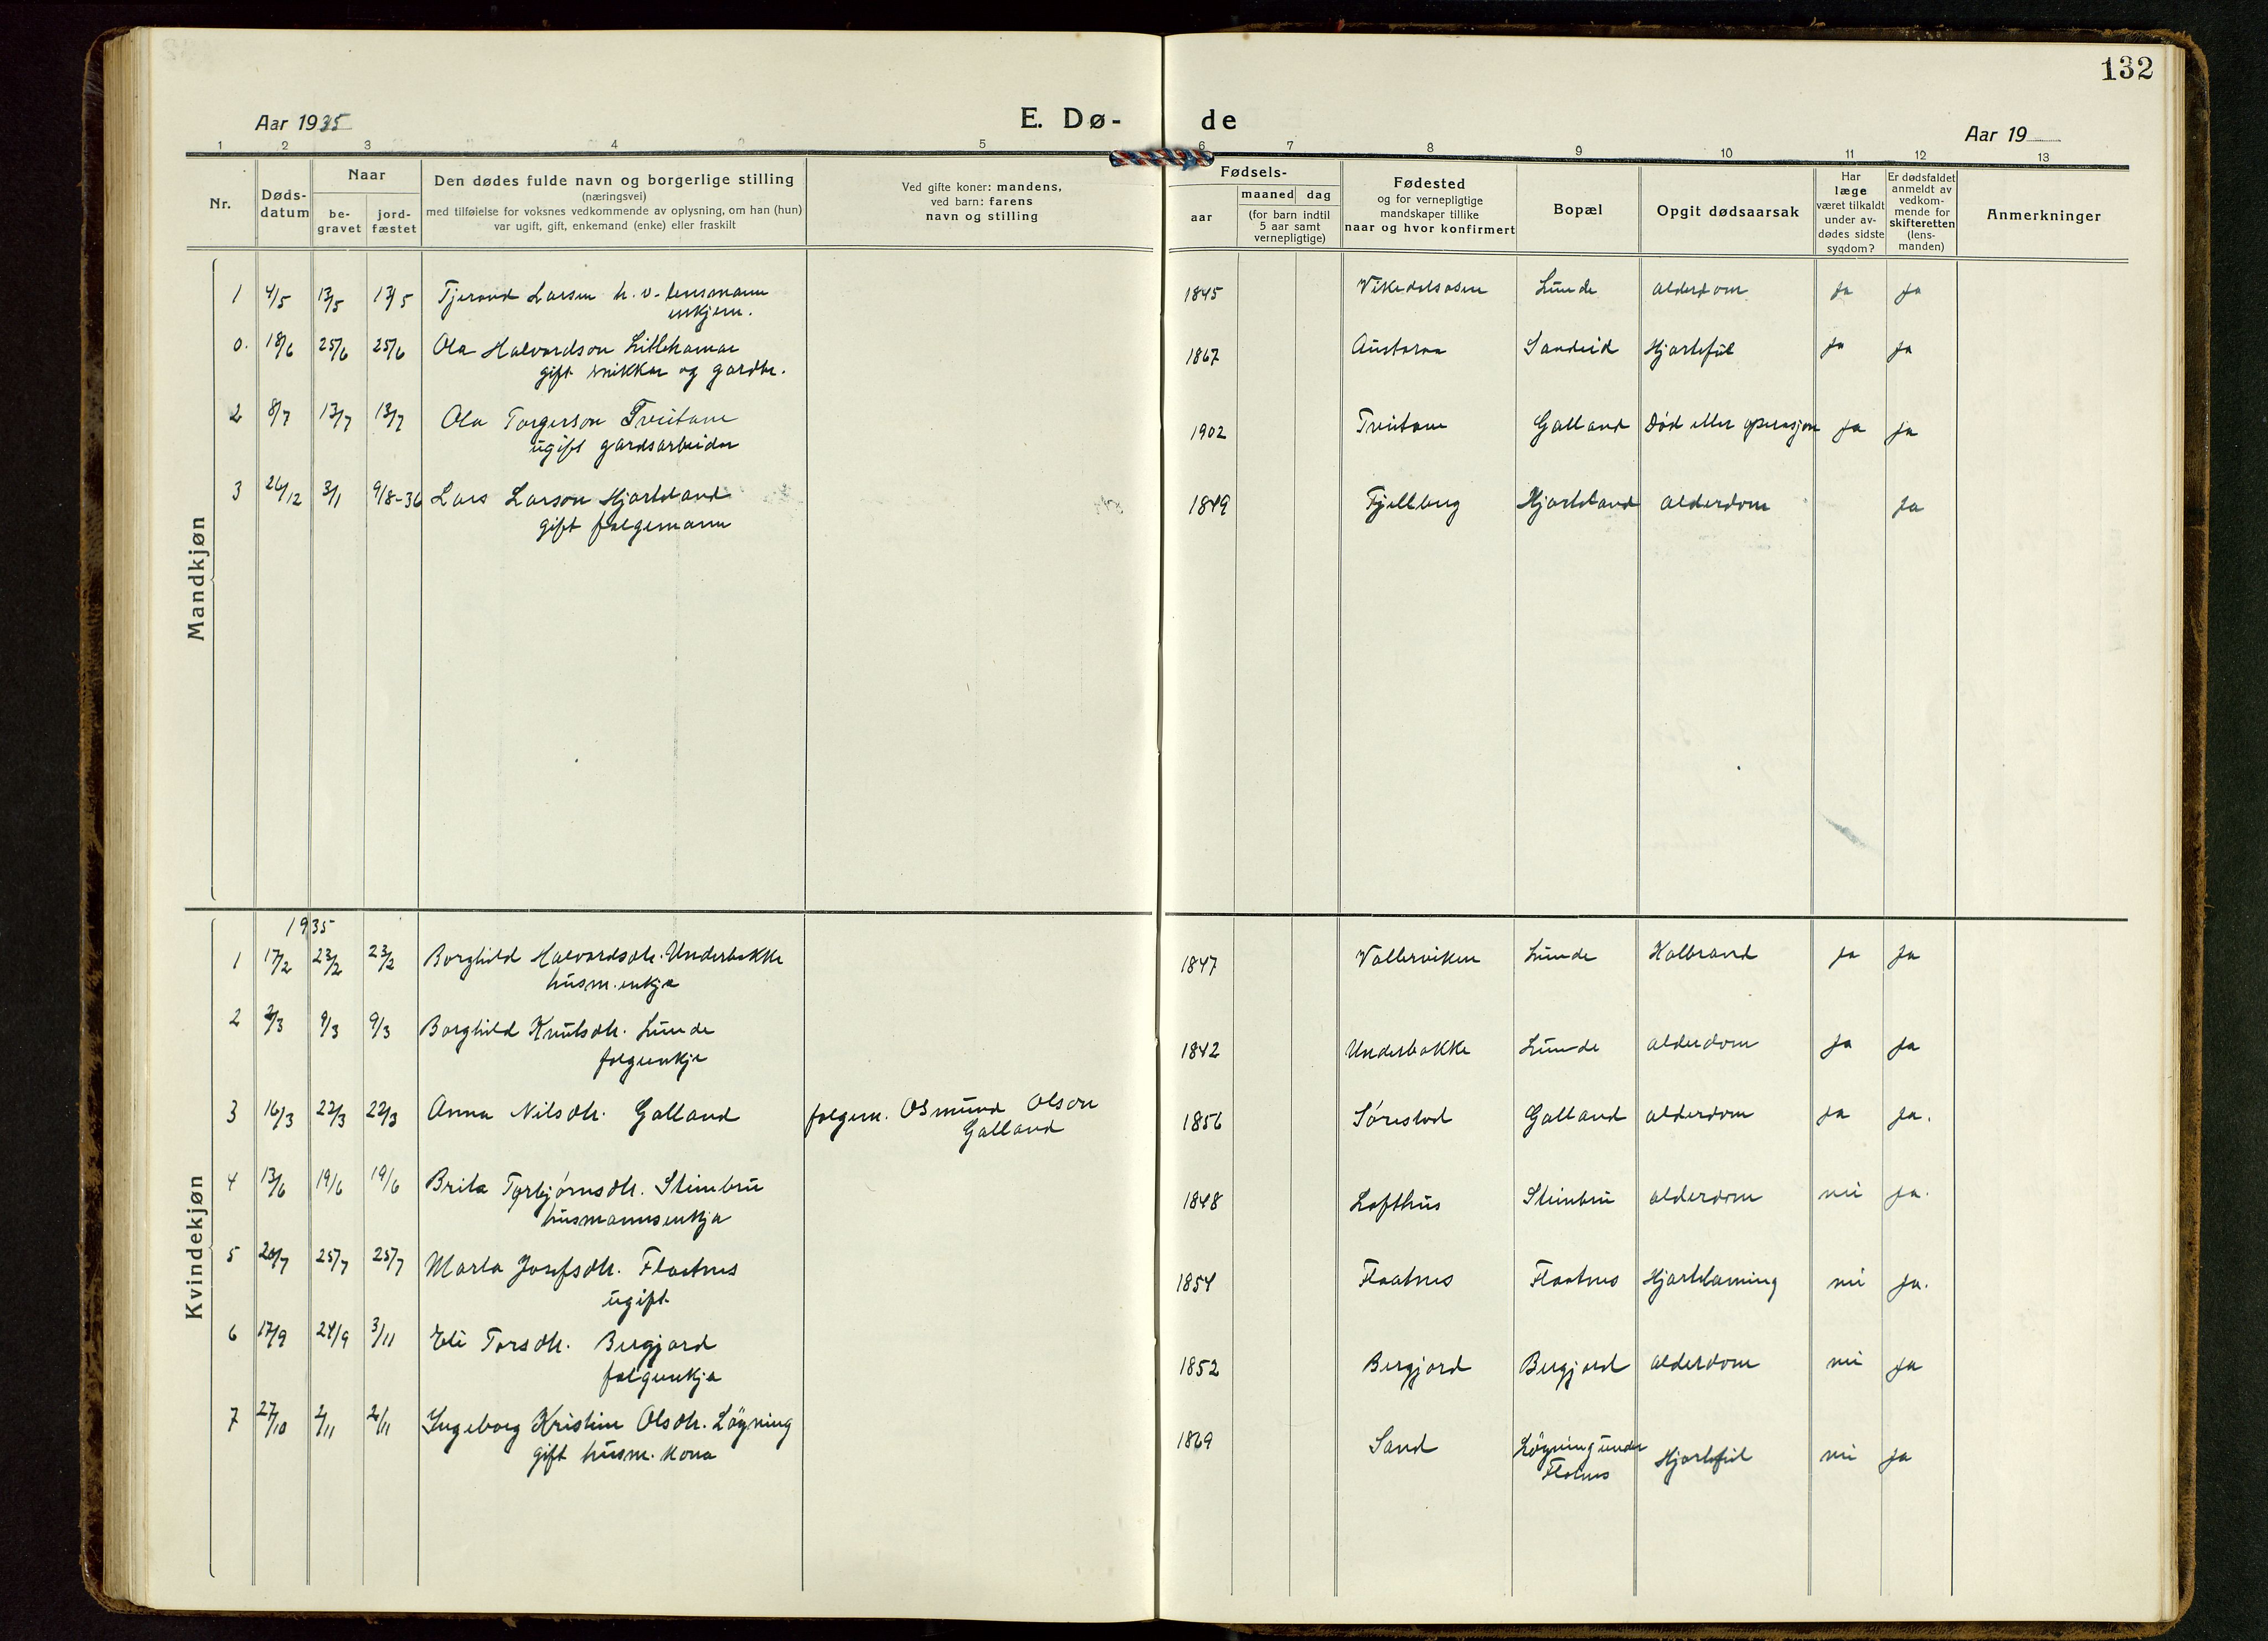 132
Aar 1935
E. Dø-
de
Aar 19
1 2 3 4 5 6 7 8 9 10 11 12 13
Nr.
Døds-
datum
Naar
be-
gravet
jord-
fæstet
Den dødes fulde navn og borgerlige stilling
(næringsvei)
med tilføielse for voksnes vedkommende av oplysning, om han (hun)
var ugift, gift, enkemand (enke) eller fraskilt
Ved gifte koner: mandens,
ved barn: farens
navn og stilling
Fødsels-
aar
maaned dag
(for barn indtil
5 aar samt
vernepligtige)
Fødested
og for vernepligtige
mandskaper tillike
naar og hvor konfirmert
Bopæl
Opgit dødsaarsak
Har
læge
været tilkaldt
under av-
dødes sidste
sygdom?
Er dødsfaldet
anmeldt av
vedkom-
mende for
skifteretten
(lens-
manden)
Anmerkninger
Mandkjøn
1 4/5 13/5 13/5 Tjerand Larsen h. v. lensmann 1845 Vikedalsosen Lunde alderdom ja ja
enkjem.
0. 18/6 25/6 25/6 Ola Halvardson Littlehamar 1867 Austaraa Sandeid Hjartefeil ja ja
gift snikkar og gardbr.
2 8/7 13/7 13/7 Ola Torgerson Tveitane 1902 Tveitane Galland Død etter operasjon ja ja
ugift gardsarbeider
3 26/12 3/1 9/8-36 Lars Larson Hjorteland 1849 Fjellberg Hjorteland alderdom ja
gift folgemann
Kvindekjøn
1935
1 17/2 23/2 23/2 Borghild Halvardsdtr. Underbakke 1847 Vallervikene Lunde Kolbrand ja ja
husm. enkja
2 2/3 9/3 9/3 Borghild Knutsdtr. Lunde 1842 Underbakke Lunde alderdom ja ja
folgeenkje
3 16/3 22/3 22/3 Anna Nilsdtr. Galland folgem. Osmund Olson 1856 Sørestod Galland alderdom ja ja.
Galland
4 13/6 19/6 19/6 Brita Torbjørnsdtr. Steinbru 1848 Lofthus Steinbru alderdom nei ja.
husmannsenkja
5 20/7 25/7 25/7 Marta Josefsdtr. Flaatnes 1854 Flaatnes Flaatnes Hjartelaming nei ja.
ugift
6 17/9 24/9 3/11 Eli Torsdtr. Bergjord 1852 Bergjord Bergjord alderdom nei ja
folgeenkja
7 27/10 2/11 2/11 Ingeborg Kristine Olsdtr. Løyning 1869 Sand Løyning under Hjartefeil nei ja
gift husm. kona Flatnes